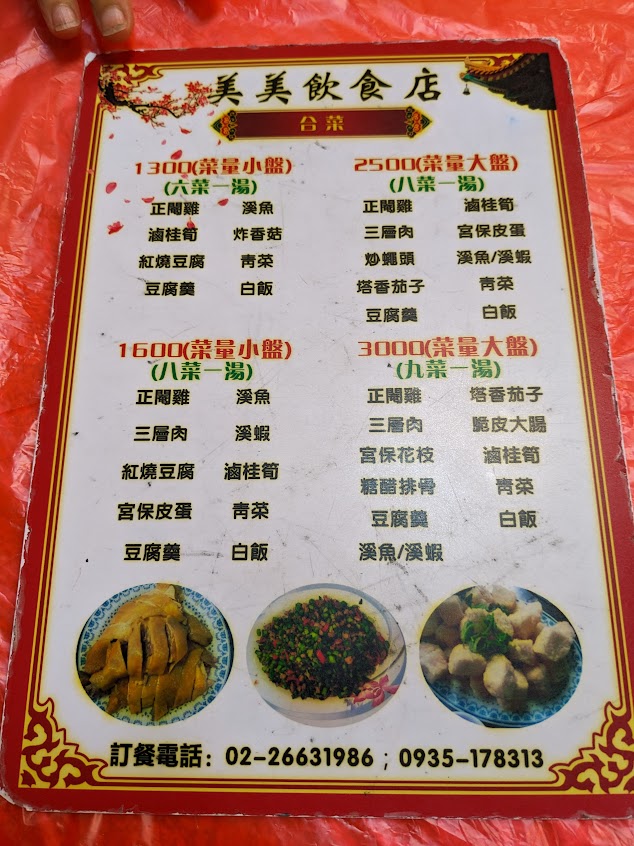 美美飲食店
合菜
1300(菜量小盤)
(六菜一湯)
正閹雞 溪魚
滷桂筍 炸香菇
紅燒豆腐 青菜
豆腐羹 白飯
2500(菜量大盤)
(八菜一湯)
正閹雞 滷桂筍
三層肉 宮保皮蛋
炒蠅頭 溪魚/溪蝦
塔香茄子 青菜
豆腐羹 白飯
1600(菜量小盤)
(八菜一湯)
正閹雞 溪魚
三層肉 溪蝦
紅燒豆腐 滷桂筍
宮保皮蛋 青菜
豆腐羹 白飯
3000(菜量大盤)
(九菜一湯)
正閹雞 塔香茄子
三層肉 脆皮大腸
宮保花枝 滷桂筍
糖醋排骨 青菜
豆腐羹 白飯
溪魚/溪蝦
訂餐電話：02-26631986；0935-178313